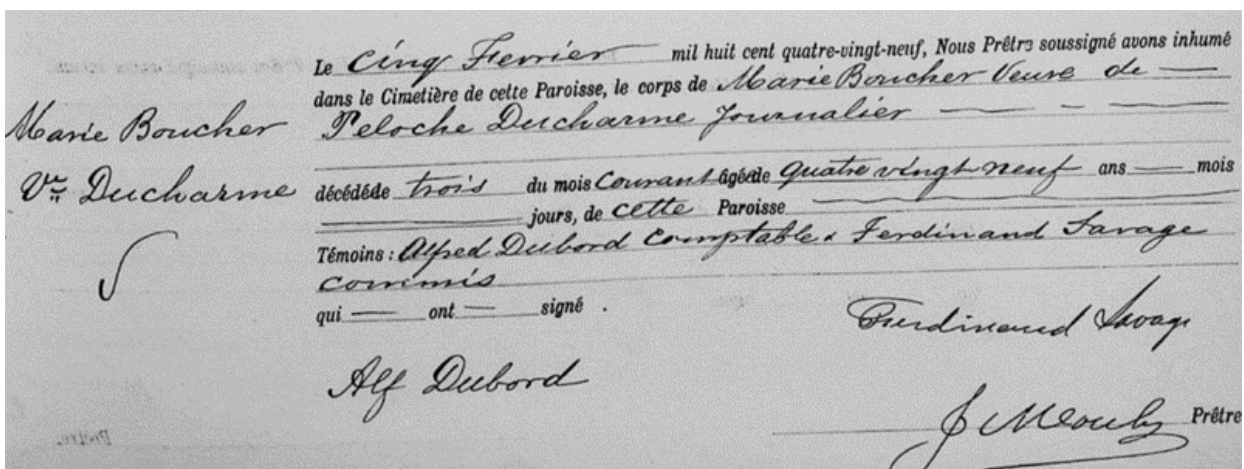 Le Cinq Fevrier mil huit cent quatre-vingt-neuf, Nous Prêtre soussigné avons inhumé
dans le Cimetière de cette Paroisse, le corps de Marie Boucher Veuve de —
Marie Boucher
Peloche Ducharme Journalier — — —
Vve Ducharme
décédéde trois du mois Courant âgéede quatre vingt neuf ans — mois
— jours, de cette Paroisse —
Témoins : Alfred Dubord Comptable & Ferdinand Savage
commis
qui — ont — signé .
Ferdinand Savage
Alf Dubord
Prêtre